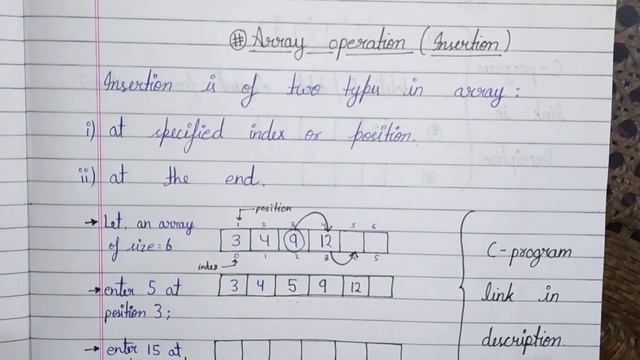 # Array operation (Insertion)
Insertion is of two types in array:
i) at specified index or position.
ii) at the end.
→ Let, an array of size=6
position
1 2 3 4 5 6
3 4 9 12
0 1 2 3 5
index →
→ enter 5 at position 3;
3 4 5 9 12
→ enter 15 at
C-program
link in
description